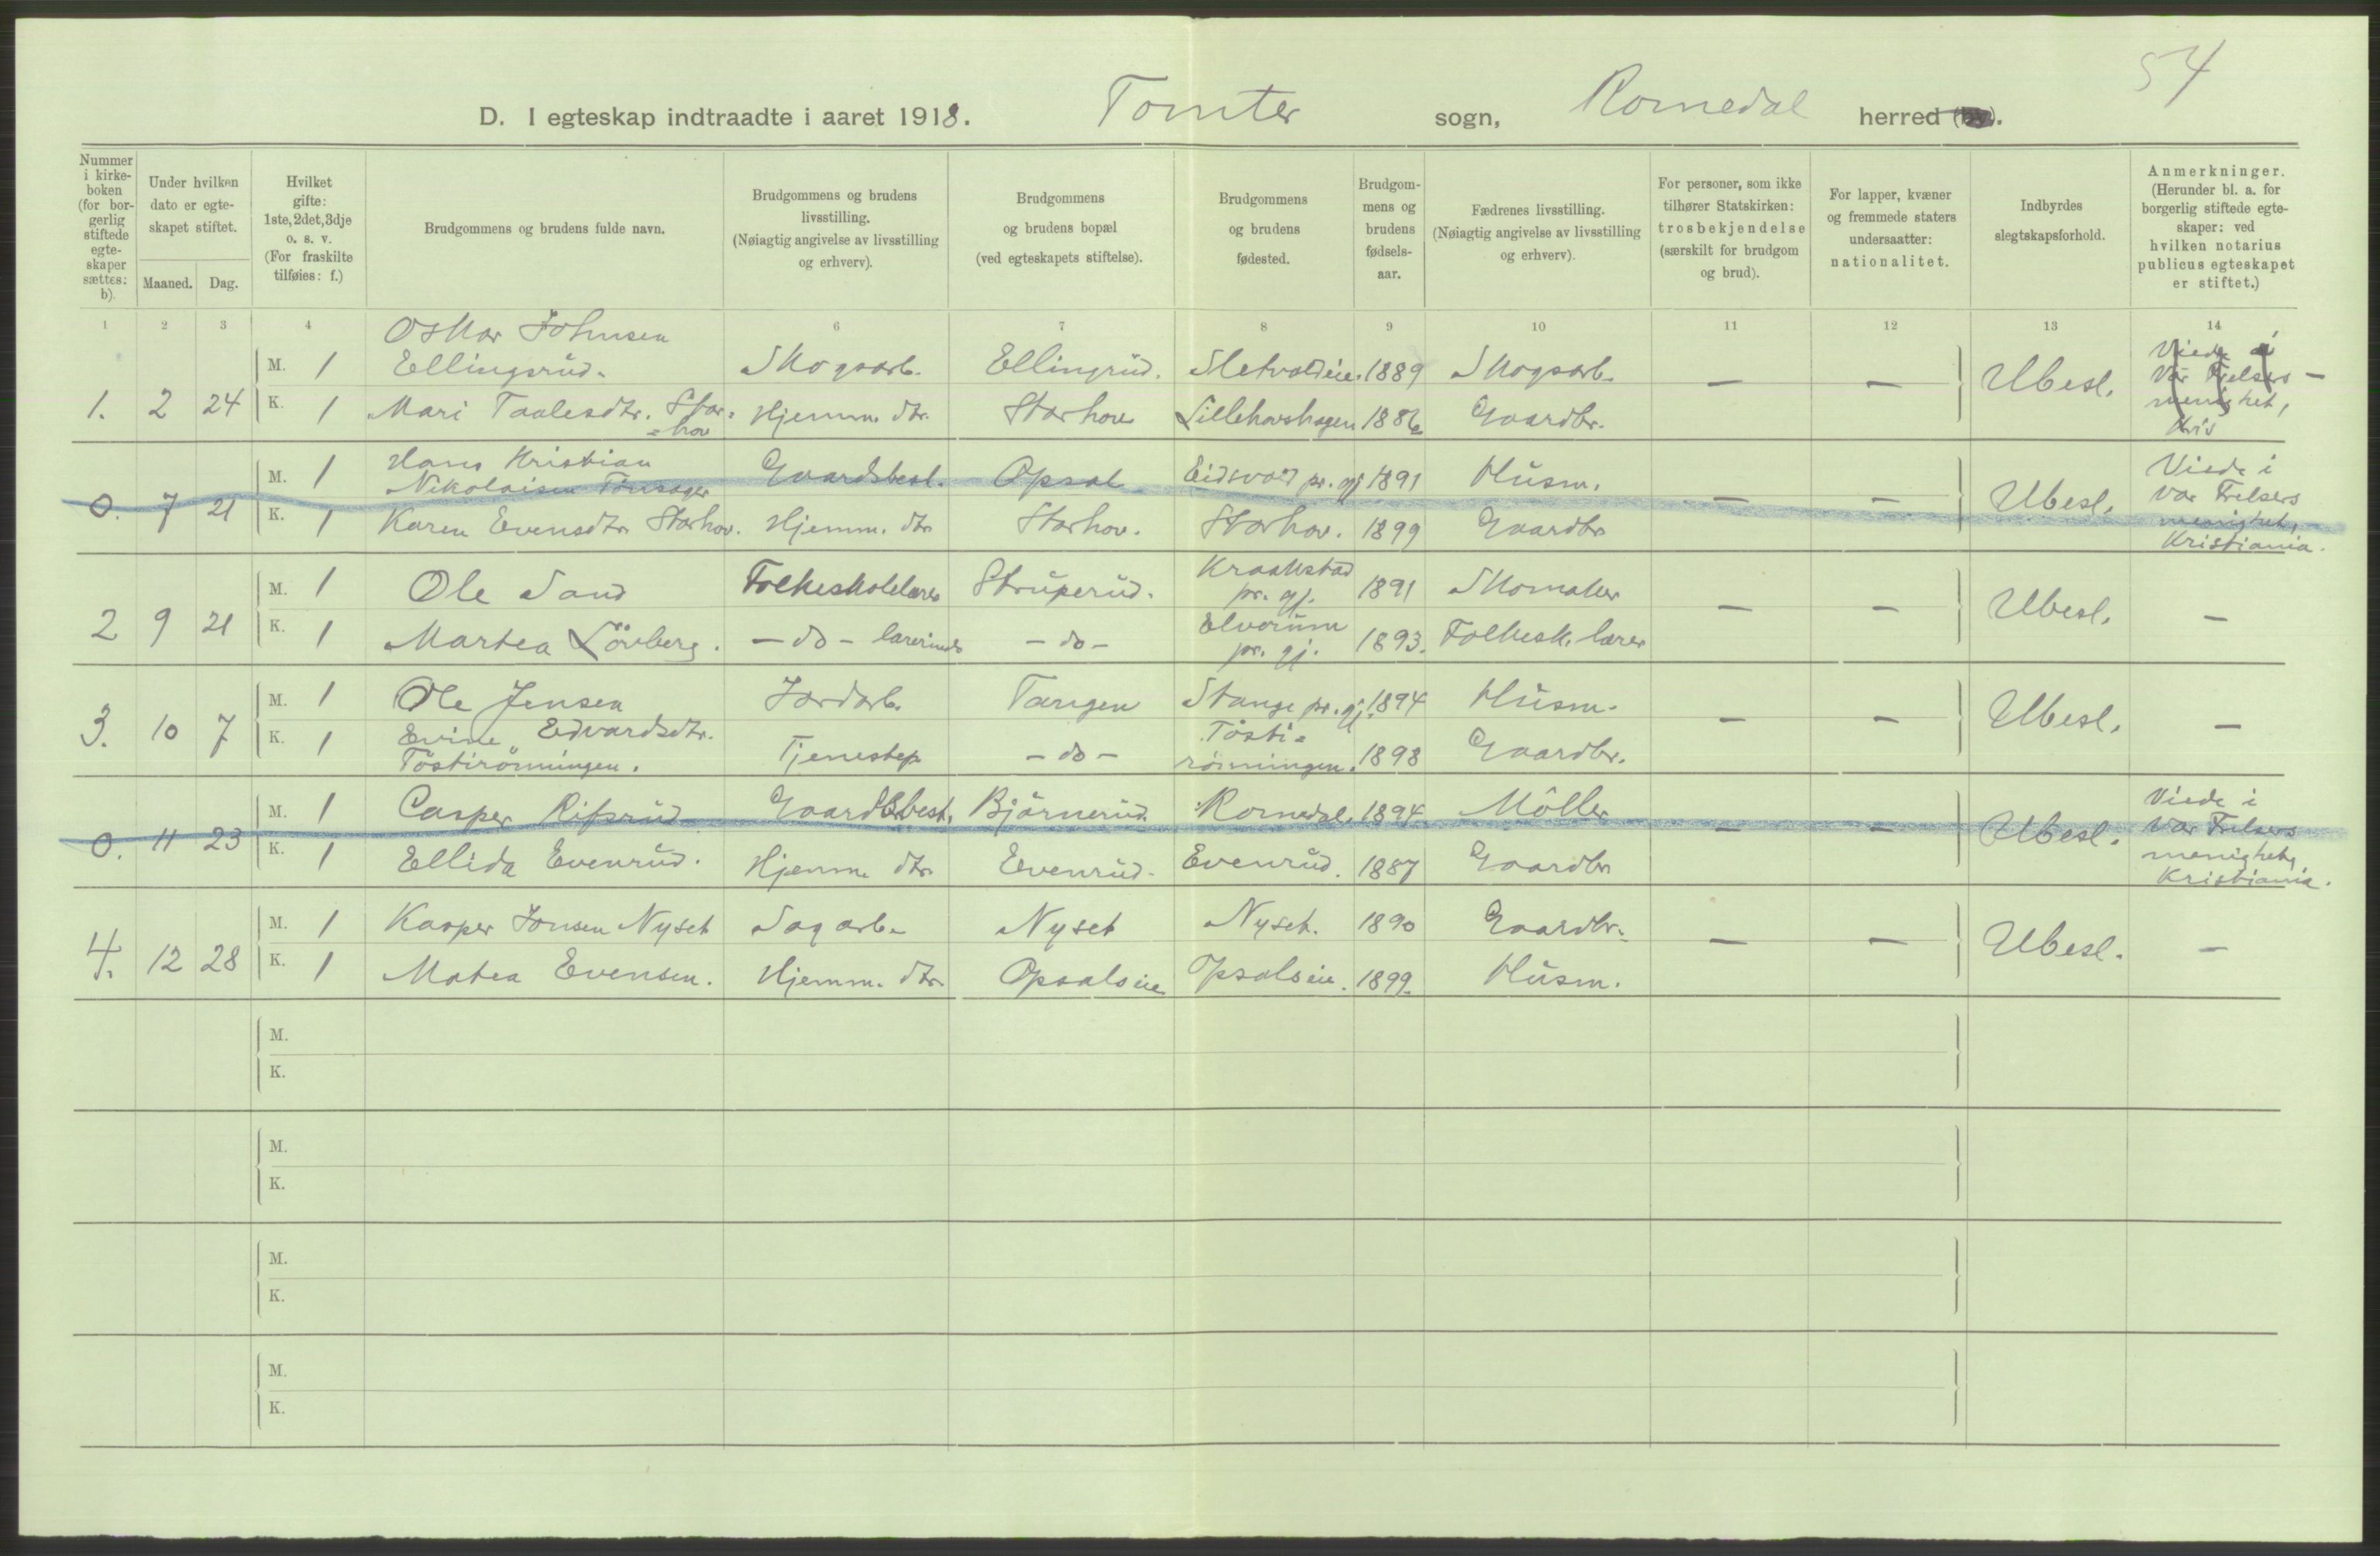 54
D. I egteskap indtraadte i aaret 1918. Tomter sogn, Romedal herred (by).
Nummer i kirkeboken (for borgerlig stiftede egteskaper sættes: b).
Under hvilken dato er egteskapet stiftet.
Maaned. Dag.
Hvilket gifte: 1ste, 2det, 3dje o. s. v. (For fraskilte tilføies: f.)
Brudgommens og brudens fulde navn.
Brudgommens og brudens livsstilling. (Nøiagtig angivelse av livsstilling og erhverv).
Brudgommens og brudens bopæl (ved egteskapets stiftelse).
Brudgommens og brudens fødested.
Brudgommens og brudens fødselsaar.
Fædrenes livsstilling. (Nøiagtig angivelse av livsstilling og erhverv).
For personer, som ikke tilhører Statskirken: trosbekjendelse (særskilt for brudgom og brud).
For lapper, kvæner og fremmede staters undersaatter: nationalitet.
Indbyrdes slegtskapsforhold.
Anmerkninger. (Herunder bl. a. for borgerlig stiftede egteskaper: ved hvilken notarius publicus egteskapet er stiftet.)
1 2 3 4 6 7 8 9 10 11 12 13 14
M. 1 Oskar Johnsen Ellingsrud. Skogsarb. Ellingrud. Sletvoldeie. 1889 Skogsarb.
1. 2 24 K. 1 Mari Taalesdtr. Storhov Hjemm. dtr. Storhov Lillehovshagen 1886 Gaardbr. — — Ubesl. Viede i Vår Frelsers menighet, Kris —
M. 1 Hans Kristian Nikolaisen Tönsager Gaardsbest. Opsal Eidsvold pr. gj. 1891 Husm.
0. 7 21 K. 1 Karen Evensdtr Storhov. Hjemm. dtr Storhov. Storhov. 1899 Gaardbr — — Ubesl. Viede i Var Frelsers menighet, Kristiania.
M. 1 Ole Sand Folkeskolelærer Struperud. Kraakstad pr. gj. 1891 Skomaker
2 9 21 K. 1 Martea Lövberg. — do — lærerinde — do — Elverum pr. gj. 1893. Folkesk. lærer — — Ubesl. —
M. 1 Ole Jensen Jordarb. Tangen Stange pr. gj. 1894 Husm.
3. 10 7 K. 1 Evine Edvardsdtr. Töstirönningen. Tjenestep. — do — Töstirönningen. 1898 Gaardbr. — — Ubesl. —
M. 1 Casper Rifsrud Gaardsbest. Björnerud Romedal. 1894 Möller
0. 11 23 K. 1 Ellida Evenrud. Hjemm. dtr. Evenrud. Evenrud. 1887 Gaardbr — — Ubesl. Viede i Var Frelsers menighet, Kristiania.
M. 1 Kasper Jonsen Nyset Sagarb. Nyset Nyset. 1890 Gaardbr.
4. 12 28 K. 1 Matea Evensen. Hjemm. dtr. Opsalseie Opsalseie. 1899. Husm. — — Ubesl. —
M.
K.
M.
K.
M.
K.
M.
K.